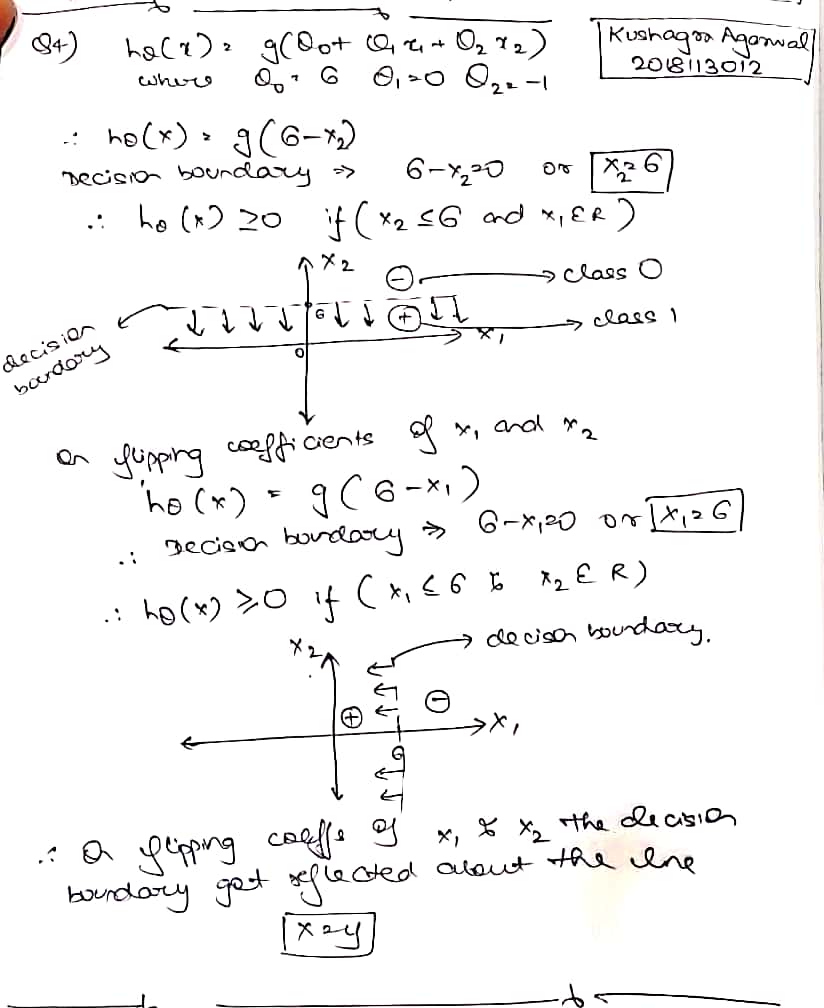 Q4) hθ(x) = g(θ0 + θ1 x1 + θ2 x2)
Kushagra Agarwal
2018113012
where θ0 = 6 θ1 = 0 θ2 = -1
∴ hθ(x) = g(6-x2)
Decision boundary ⇒ 6-x2=0 or x2=6
∴ hθ(x) ≥0 if (x2 ≤6 and x1 ∈ R)
x2
⊖ → class 0
6 ⊕ → class 1
x1
decision
boundary
0
On flipping coefficients of x1 and x2
hθ(x) = g(6-x1)
∴ Decision boundary ⇒ 6-x1=0 or x1=6
∴ hθ(x) ≥0 if (x1 ≤ 6 & x2 ∈ R)
x2
→ decison boundary.
⊕ ⊖
x1
6
∴ On flipping coeffs of x1 & x2 the decision
boundary get reflected about the line
x=y